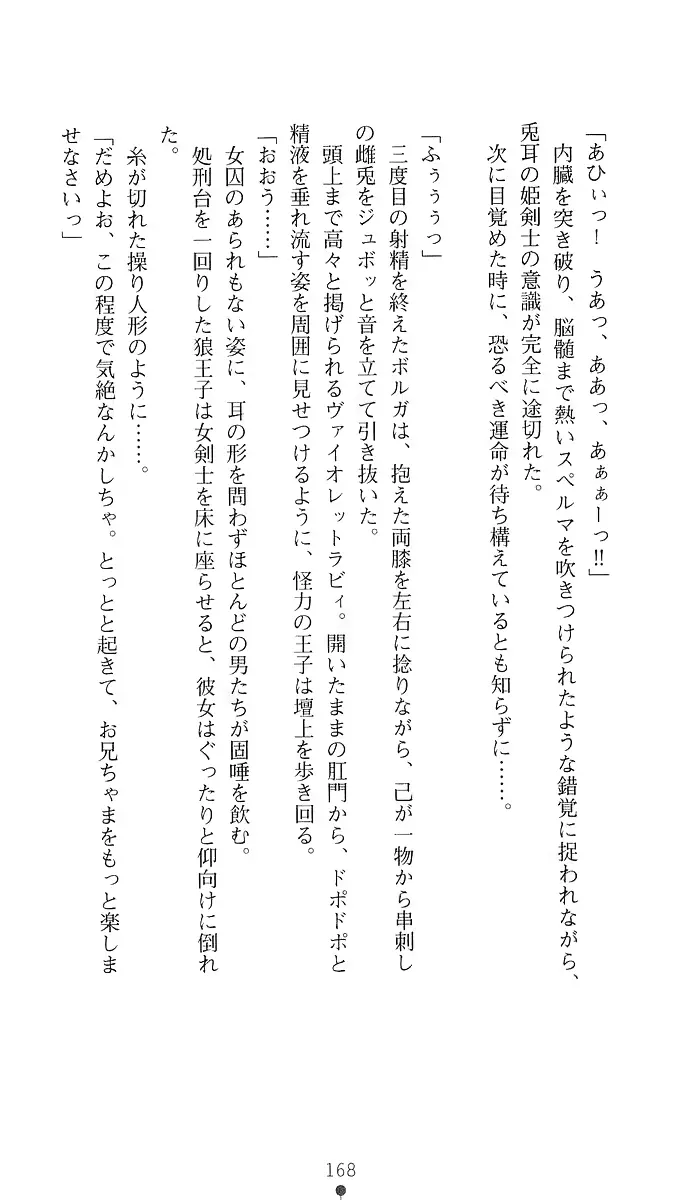 「あひぃっ！　うあっ、ああっ、あぁぁーっ!!」
　内臓を突き破り、脳髄まで熱いスペルマを吹きつけられたような錯覚に捉われながら、
兎耳の姫剣士の意識が完全に途切れた。
　次に目覚めた時に、恐るべき運命が待ち構えているとも知らずに……。
「ふぅぅぅっ」
　三度目の射精を終えたボルガは、抱えた両膝を左右に捻りながら、己が一物から串刺し
の雌兎をジュボッと音を立てて引き抜いた。
　頭上まで高々と掲げられるヴァイオレットラビィ。開いたままの肛門から、ドポドポと
精液を垂れ流す姿を周囲に見せつけるように、怪力の王子は壇上を歩き回る。
「おおう……」
　女囚のあられもない姿に、耳の形を問わずほとんどの男たちが固唾を飲む。
　処刑台を一回りした狼王子は女剣士を床に座らせると、彼女はぐったりと仰向けに倒れ
た。
　糸が切れた操り人形のように……。
「だめよお、この程度で気絶なんかしちゃ。とっとと起きて、お兄ちゃまをもっと楽しま
せなさいっ」
168